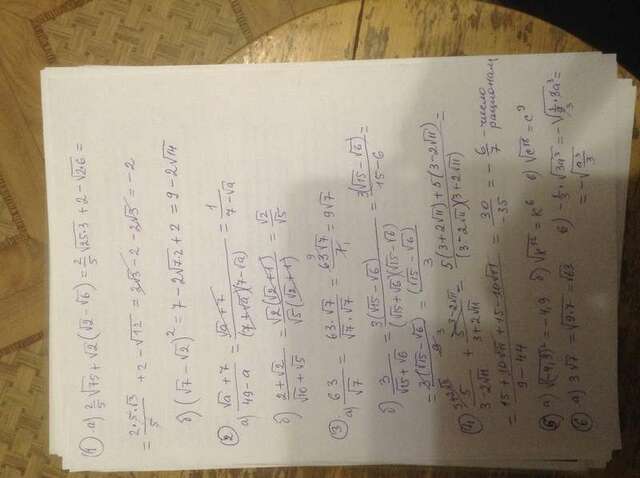 ① а) 2/5 √75 + √2 (√2 − √6) = 2/5 √25·3 + 2 − √2·6 =
= 2·5·√3/5 + 2 − √12 = 2√3 − 2 − 2√3 = −2
б) (√7 − √2)² = 7 − 2√7·2 + 2 = 9 − 2√14
② а) √a + 7/49 − a = √a + 7/(7 + √a)(7 − √a) = 1/7 − √a
б) 2 + √2/√10 + √5 = √2(√2 + 1)/√5(√2 + 1) = √2/√5
③ а) 63/√7 = 63·√7/√7·√7 = 63√7/7 = 9√7
б) 3/√15 + √6 = 3(√15 − √6)/(√15 + √6)(√15 − √6) = 3(√15 − √6)/15 − 6 =
= 3(√15 − √6)/9 = (√15 − √6)/3
④ 5/3 − 2√11 + 5/3 + 2√11 = 5(3 + 2√11) + 5(3 − 2√11)/(3 − 2√11)(3 + 2√11) =
= 15 + 10√11 + 15 − 10√11/9 − 44 = 30/−35 = − 6/7 - число рационал
⑤ а) √(−4,9)² = −4,9 б) √k¹² = k⁶ в) √c¹⁸ = c⁹
⑥ а) 3√7 = √9·7 = √63 в) − 1/3 · √3a³ = −√1/9 · 3a³ =
= −√a³/3